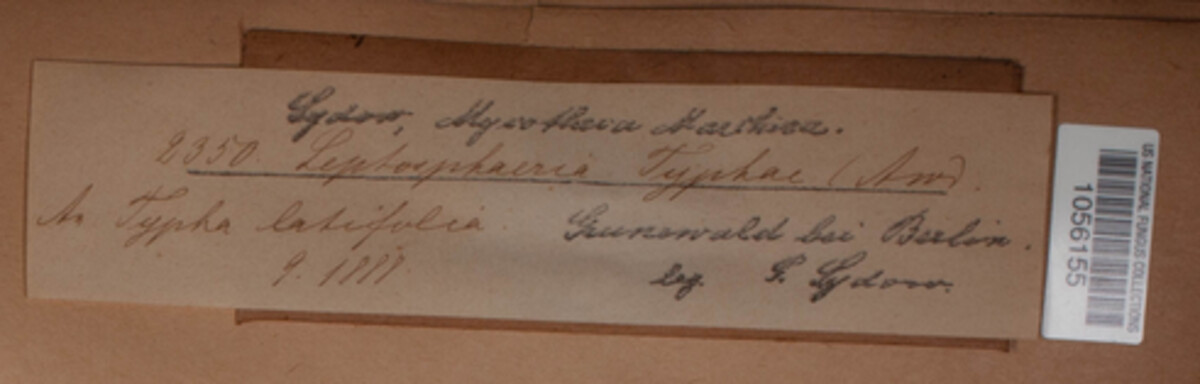 Sydow, Mycotheca Marchica.
2350. Leptosphaeria Typhae (Aw).
An Typha latifolia. Grunewald bei Berlin.
9. 1888. leg. P. Sydow.
US NATIONAL FUNGUS COLLECTIONS
1056155